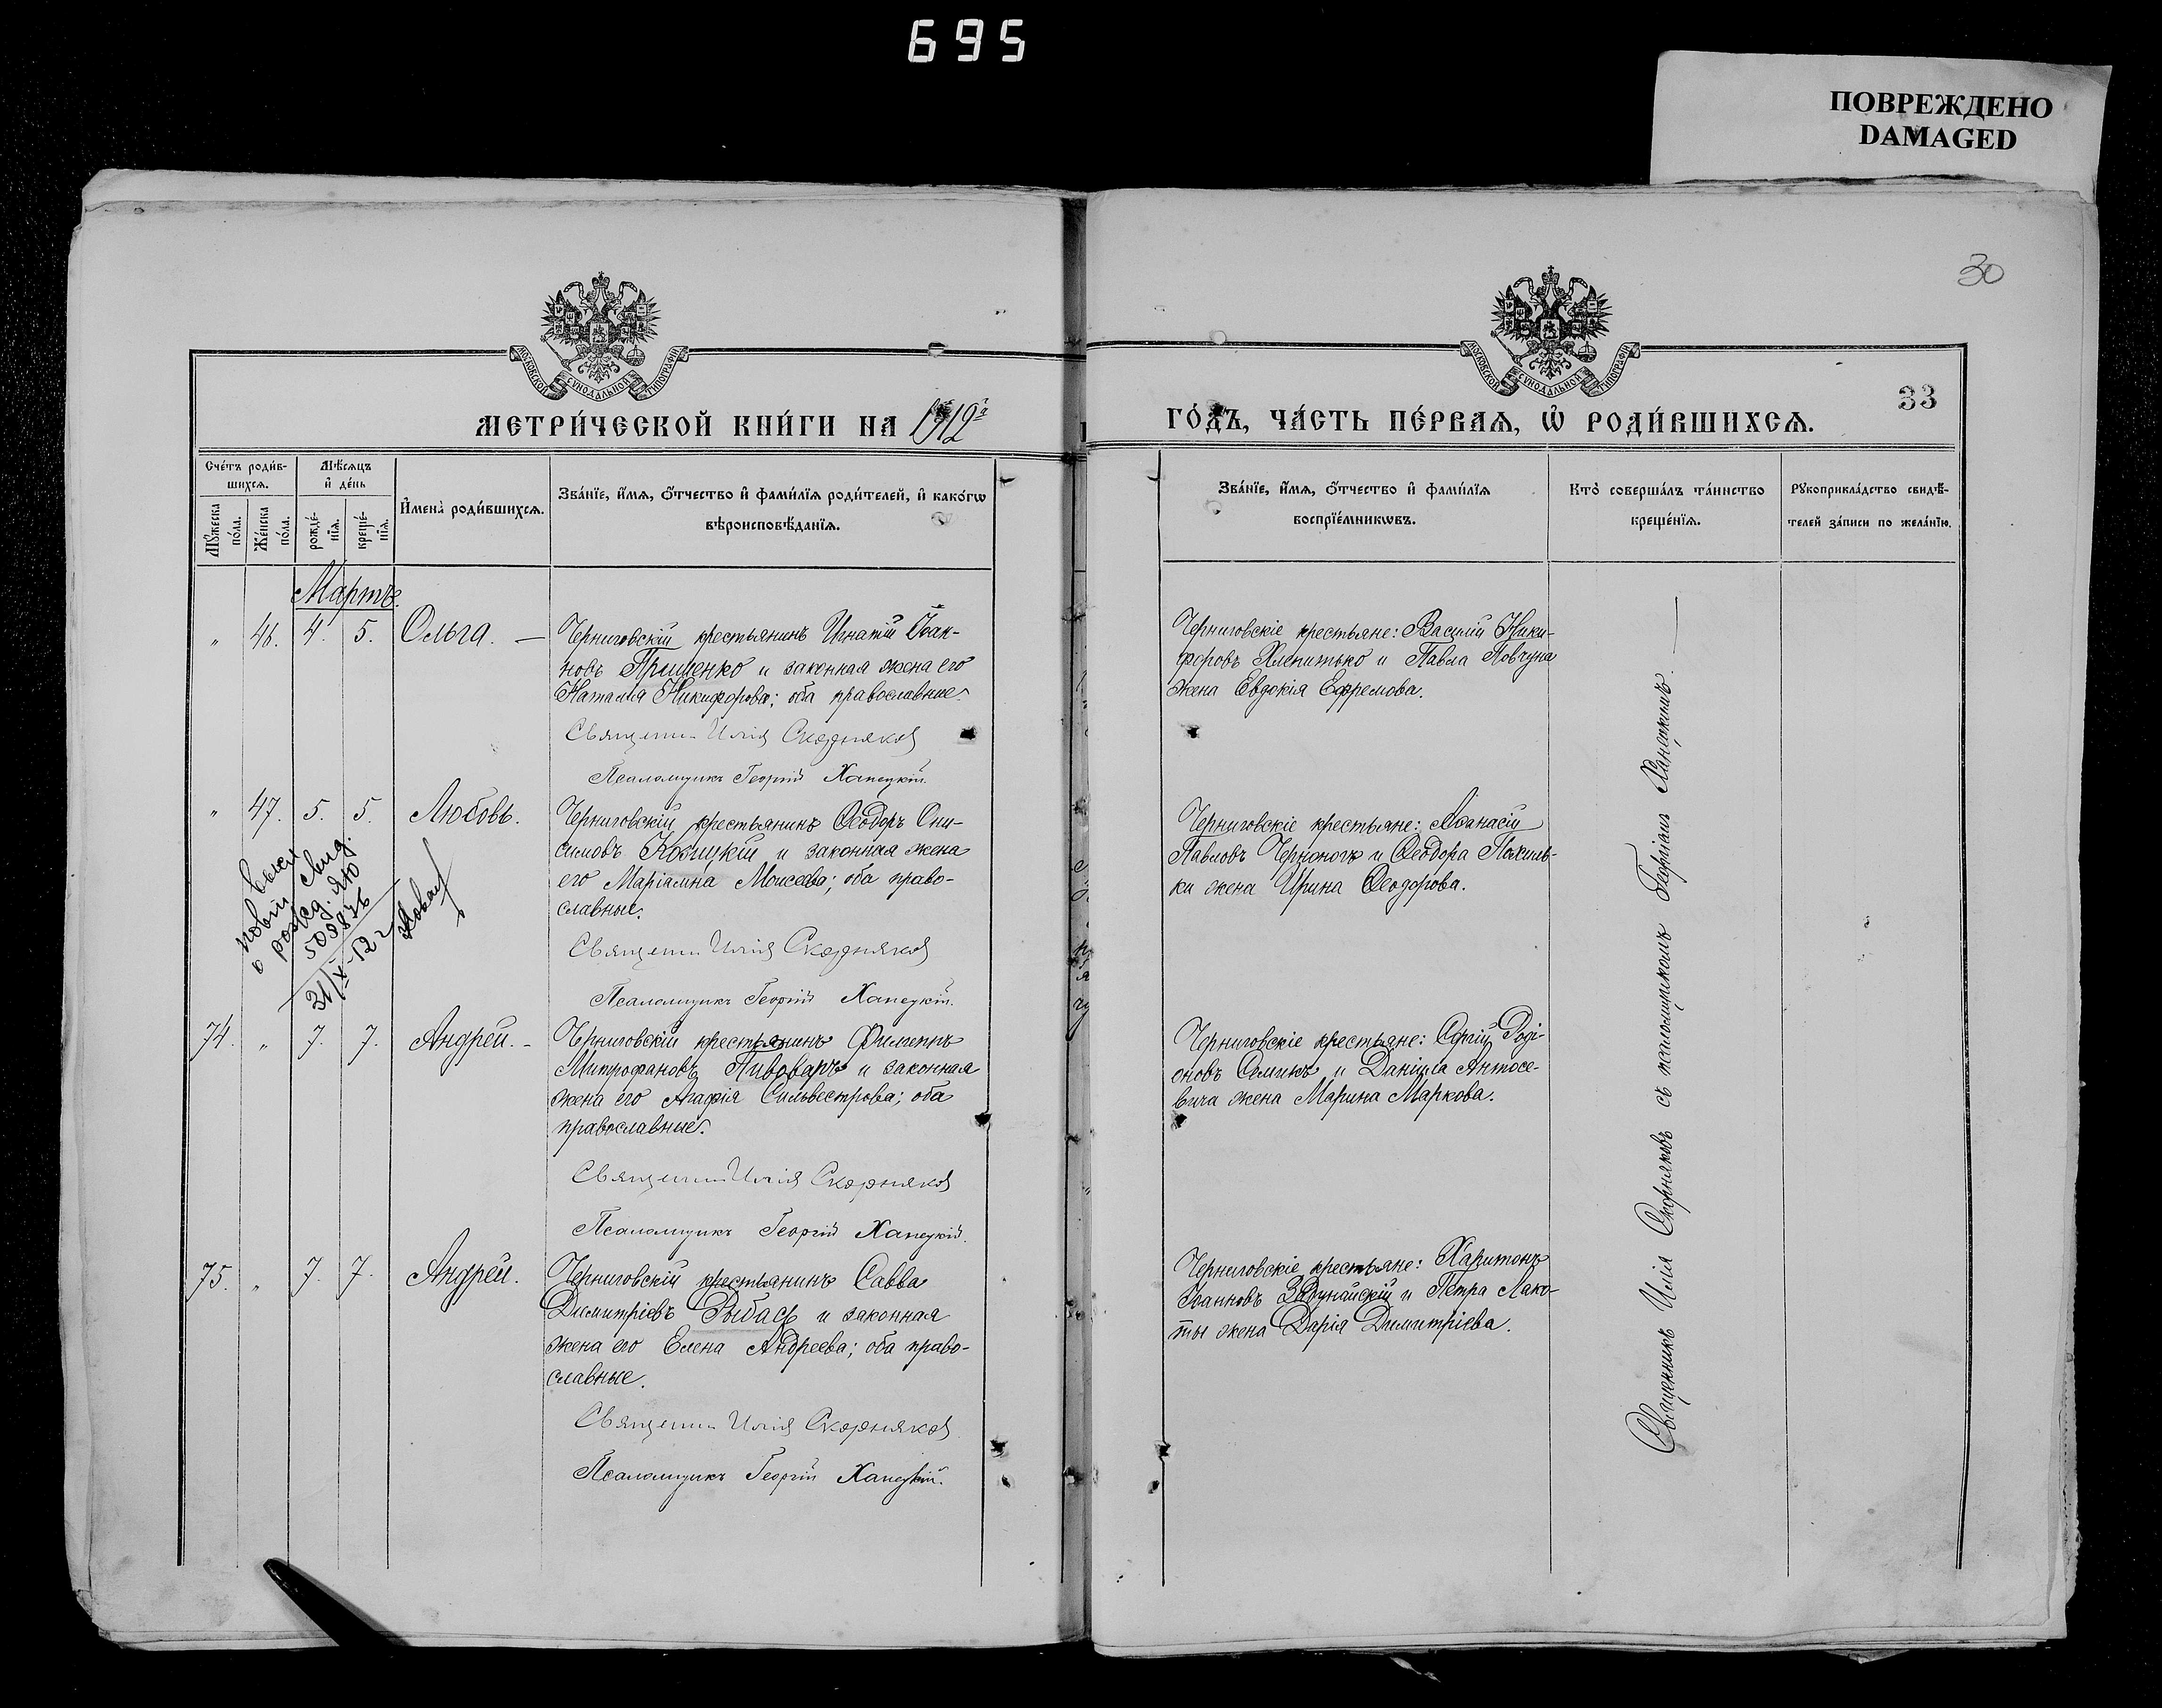 695
ПОВРЕЖДЕНО
DAMAGED
30
33
МОСКОВСКОЙ СѴНОДАЛЬНОЙ ТИПОГРАФІИ
МОСКОВСКОЙ СѴНОДАЛЬНОЙ ТИПОГРАФІИ
МЕТРИ́ЧЕСКОЙ КНИ́ГИ НА 1912
ГО́ДЪ, ЧА́СТЬ ПЕ́РВАѦ, Ѡ҆ РОДИ́ВШИХСѦ.
Сче́тъ роди́в-
шихсѧ.
Мꙋ́жеска
по́ла.
Же́нска
по́ла.
Мѣ́сѧцъ
и҆ де́нь
рожде́-
нїѧ.
креще́-
нїѧ.
И҆мена̀ роди́вшихсѧ.
Зва́нїе, и҆́мѧ, ѻ҆́тчество и҆ фами́лїѧ роди́телей, и҆ како́гѡ
вѣроисповѣ́данїѧ.
Зва́нїе, и҆́мѧ, ѻ҆́тчество и҆ фами́лїѧ
воспрїе́мникѡвъ.
Кто̀ соверша́лъ та́инство
креще́нїѧ.
Рꙋкоприкла́дство свидѣ́-
телей за́писи по жела́нїю.
Мартъ.
" 46. 4. 5. Ольга. —
Черниговскій крестьянинъ Игнатій Іоан-
новъ Прищенко и законная жена его
Наталія Никифорова; оба православные.
Священн. Илія Скорняков
Псаломщикъ Георгій Ханецкій.
Черниговскіе крестьяне: Василій Ники-
форовъ Хленитько и Павла Повгуна
жена Евдокія Ефремова.
" 47. 5. 5. Любовь.
Черниговскій крестьянинъ Ѳеодоръ Они-
симовъ Козицкій и законная жена
его Маріамна Моисеева; оба право-
славные.
Священн. Илія Скорняков
Псаломщикъ Георгій Ханецкій.
Черниговскіе крестьяне: Аѳанасій
Павловъ Черноногъ и Ѳеодора Похиль-
ки жена Ирина Ѳеодорова.
новый свид.
о рожд. ЯЮ
509876
31/X-52 г
74. " 7. 7. Андрей. -
Черниговскій крестьянинъ Филиппъ
Митрофановъ Пивоваръ и законная
жена его Агафія Сильвестрова; оба
православные.
Священн. Илія Скорняков
Псаломщикъ Георгій Ханецкій.
Черниговскіе крестьяне: Сергій Родi-
оновъ Семикъ и Даніила Антосе-
вича жена Марина Маркова.
75. " 7. 7. Андрей.
Черниговскій крестьянинъ Савва
Димитріевъ Рыбась и законная
жена его Елена Андреева; оба право-
славные.
Священн. Илія Скорняков
Псаломщикъ Георгій Ханецкій.
Черниговскіе крестьяне: Харитонъ
Іоанновъ Задунайскій и Петра Мако-
ты жена Дарія Димитріева.
Священникъ Илія Скорняковъ съ псаломщикомъ Георгіемъ Ханецкимъ.